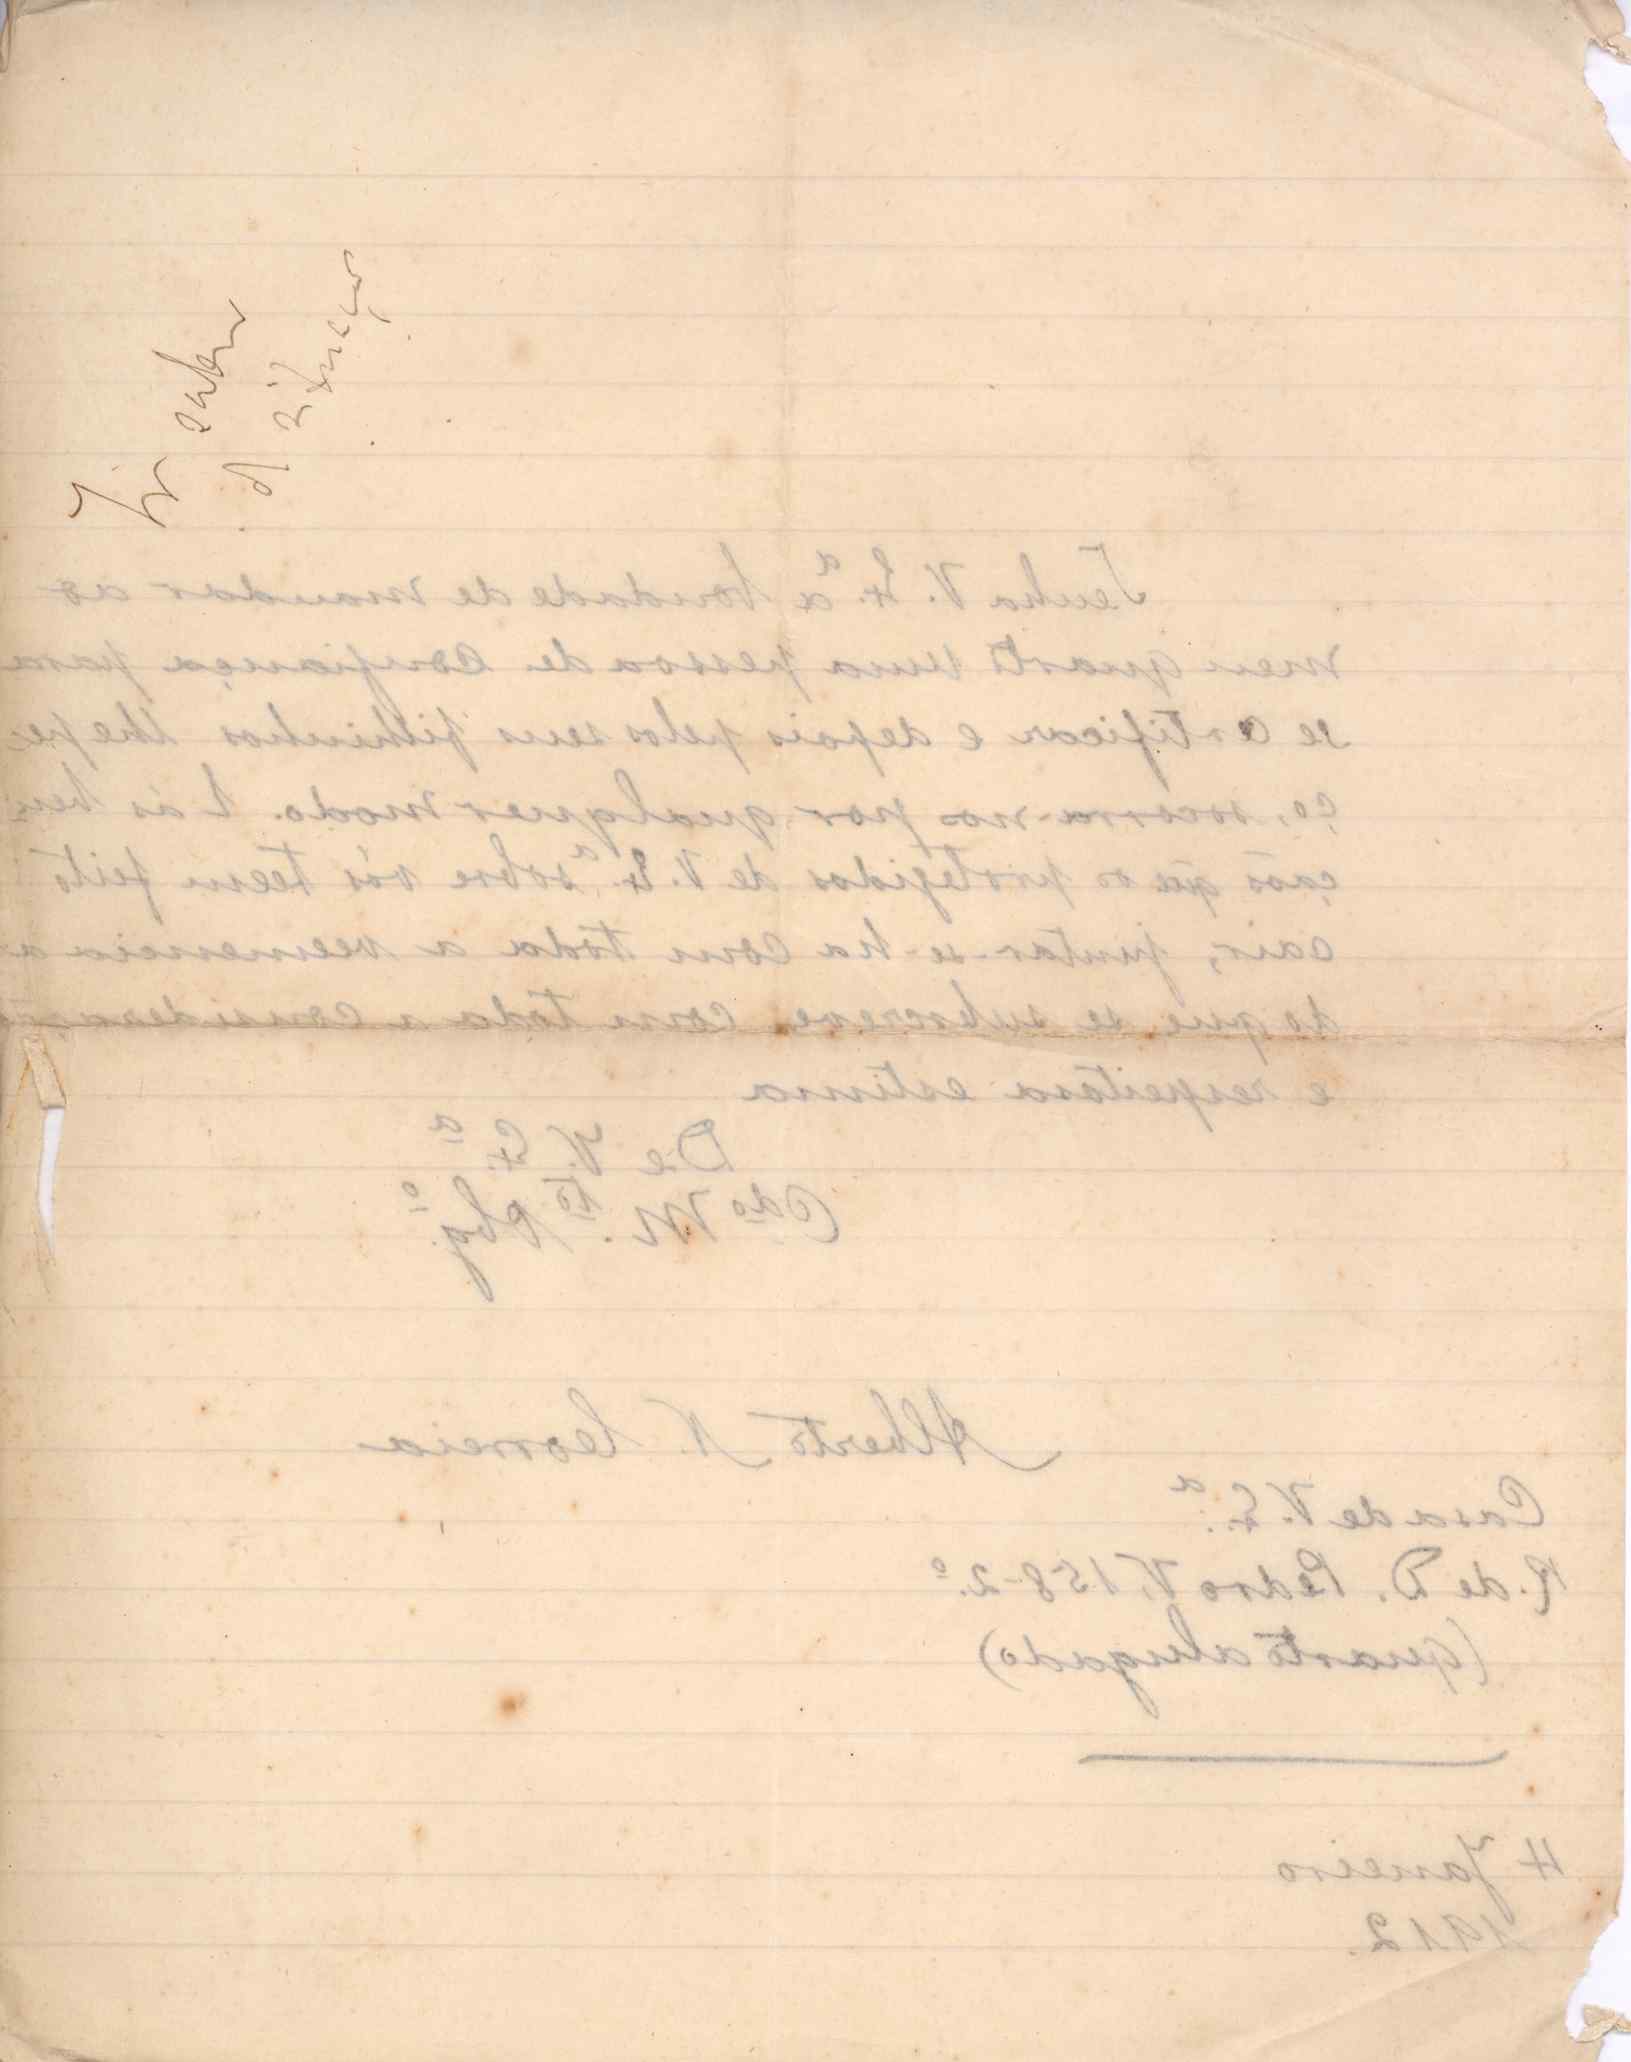 a situação
Tenha V. Ex.ª a bondade de mandar ao
meu quarto uma pessoa de confiança para
se certificar e depois pelos seus filhinhos lhe pe
ço, socorra-nos por qualquer modo. E ás ben
çãos que os protegidos de V. Ex.ª sobre vós teem feito
cair, juntar-se-ha com toda a veemencia a
do que se subscreve com toda a consideração
e respeitosa estima
De V. Ex.ª
C.do M.to Obg.º
Alberto N. Correia
Casa de V. Ex.ª
R. de D. Pedro V, 158-2.º
(quarto alugado)
4 Janeiro
1912.